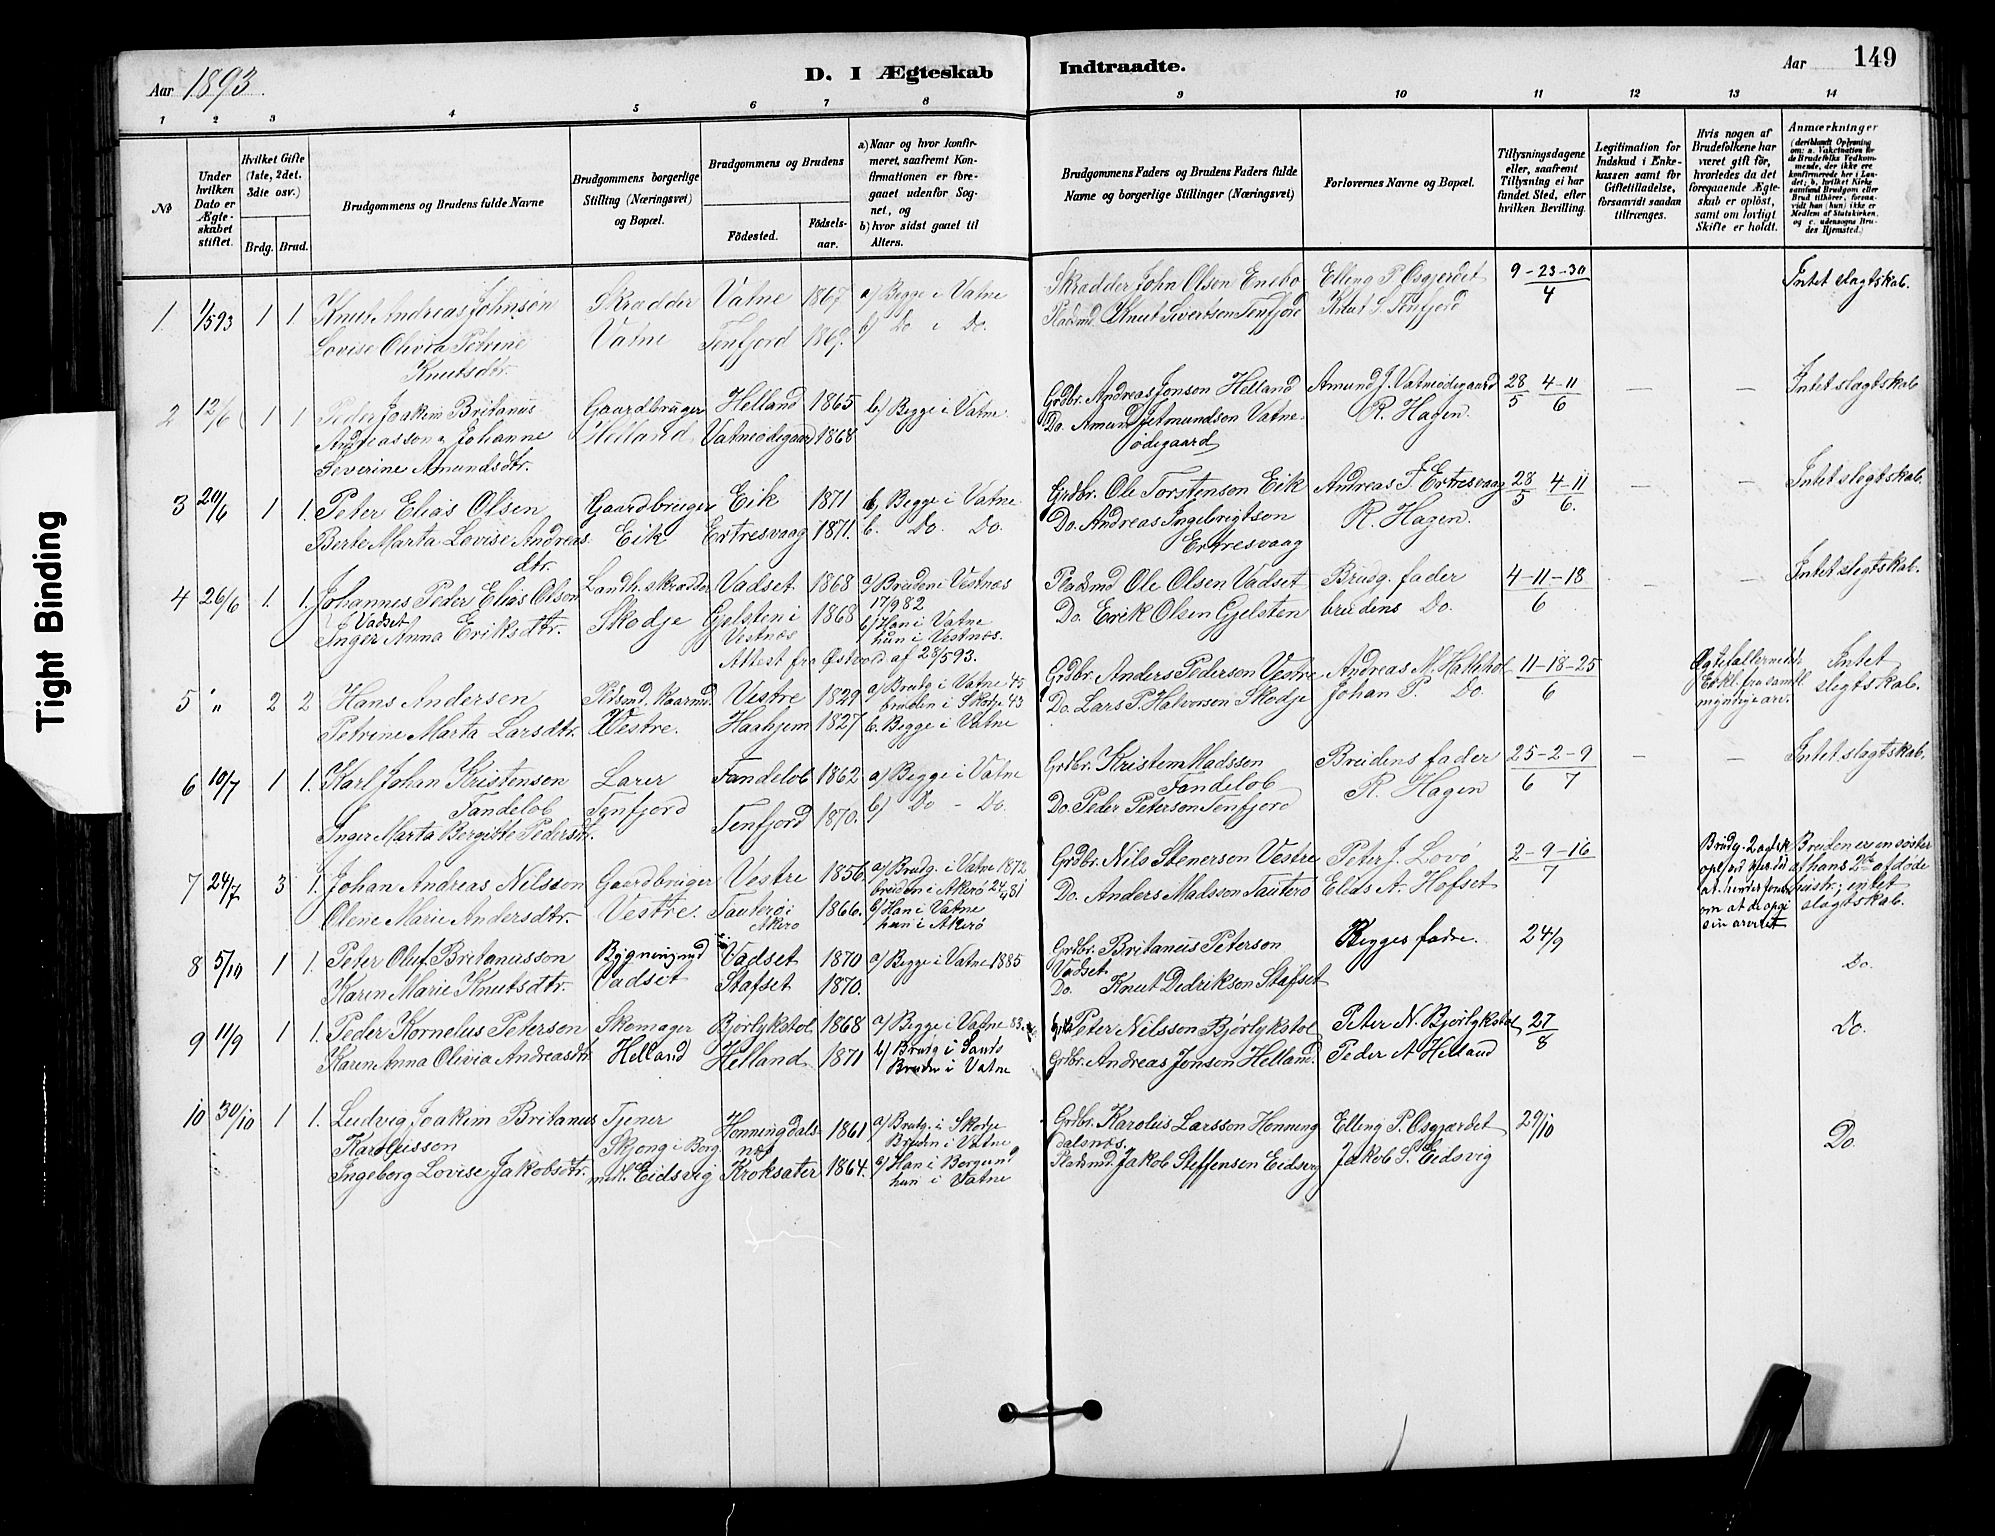 Tight Binding
Aar 1893.
D. I Ægteskab Indtraadte.
Aar 149
1 2 3 4 5 6 7 8 9 10 11 12 13 14
No
Under hvilken Dato er Ægteskabet stiftet.
Hvilket Gifte (1ste, 2det. 3die osv.)
Brdg. Brud.
Brudgommens og Brudens fulde Navne
Brudgommens borgerlige Stilling (Næringsvei) og Bopæl.
Brudgommens og Brudens
Födested.
Födsels-aar.
a) Naar og hvor konfirmeret, saafremt Konfirmationen er foregaaet udenfor Sognet, og
b) hvor sidst gaaet til Alters.
Brudgommens Faders og Brudens Faders fulde Navne og borgerlige Stillinger (Næringsvei)
Forlovernes Navne og Bopæl.
Tillysningsdagene eller, saafremt Tillysning ei har fundet Sted, efter hvilken Bevilling.
Legitimation for Indskud i Enkekassen samt for Giftetilladelse, forsaavidt saadan tiltrænges.
Hvis nogen af Brudefolkene har været gift för, hvorledes da det foregaaende Ægteskab er oplöst, samt om lovligt Skifte er holdt.
Anmærkninger
(deriblandt Oplysning om: a. Vakcination for de Brudefolks Vedkommende, der ikke ere konfirmerede her i Landet; b. hvilket Kirkesamfund Brudgom eller Brud tilhörer, forsaavidt han (hun) ikke er Medlem af Statskirken. og c. udensogns Brudes Hjemsted.)
1 1/5 93 1 1. Knut Andreas Johnson Skrædder Vatne 1867 a) Begge i Vatne Skrædder John Olsen Enebo Elling P. Osgjerdet 9-23-30/4 Intet slægtskab.
Lovise Olivia Petrine Vatne Tenfjord 1869. b) Do i Do. Pladsmd. Knut Sivertsen Tenfjord Knut S. Tenfjord
Knutsdtr.
2 12/6 1 1 Peder Joakim Britanus Gaardbruger Helland 1865 b) Begge i Vatne. Grdbr. Andreas Jonson Helland Amund J. Vatneødegaard 28/5 4-11/6 — — Intet slægtskab
Andreasson & Johanne Helland Vatneødegaard 1868 Do. Amund Jetmundson Vatne- R. Hagen.
Severine Amundsdtr. ødegaard
3 20/6 1 1. Peter Elias Olsen Gaardbruger Eik 1871 b. Begge i Vatne Grdbr. Ole Torstenson Eik Andreas I. Ertresvaag 28/5 4-11/6. — — Intet slægtskab.
Berte Marta Lovise Andreas Eik Ertresvaag 1871. b. Do. Do. Do. Andreas Ingebrigtson R. Hagen.
dtr. Ertresvaag
4 26/6 1. 1. Johannes Peder Elias Olson Landh. skrædder Vadset 1868 a) Bruden i Vestnæs Pladsmd Ole Olsen Vadset Brudg. fader 4-11-18/6 — — Intet slægtskab.
Vadset 17/9 82
Inger Anna Eriksdtr. Skodje Gjelsten i 1868 b) Han i Vatne Do. Erik Olsen Gjelsten brudens Do.
Vestnæs hun i Vestnæs.
Attest fra Østvold af 28/5 93.
5 " 2 2 Hans Andersen Pldsmd. Kaarmd. Vestre 1829 a) Brudg. i Vatne 45 Grdbr. Anders Pederson Vestre Andreas N. Hatlehol 11-18-25/6 Intet
bruden i Skodje 43 Do. Lars P. Halvorson Skodje Johan P. Do. slægtskab.
Petrine Marta Larsdtr. Vestre. Haahjem 1827 b. Begge i Vatne
6 10/7 1 1. Karl Johan Kristenson Lærer Tandelob 1862. a) Begge i Vatne Grdbr. Kristen Madsson Brudens fader 25-2-9/6 7 — — Intet slægtskab.
Tandelob Tenfjord b) Do - Do. Tandelob R. Hagen
Inger Marta Bergitte Pedersdtr. Tenfjord 1870. Do. Peder Peterson Tenfjord
7 24/7 3 1. Johan Andreas Nilsson Gaardbruger Vestre 1856. a) Brudg. i Vatne 1872 Grdbr. Nils Stenerson Vestre Peter J. Lovø 2-9-16/7 Bruden er en søster
bruden i Akerø 24/4 81 af hans 2den afdøde
Olene Marie Andersdtr. Vestre. Tauterø i 1866. b) Han i Vatne Do. Anders Madsson Tauterø Elias A. Hofset hustr; intet
Akerø hun i Akerø slægtskab.
8 5/10 1 1. Peter Oluf Britanusson Bygningsmd Vadset 1870 a) Begge i Vatne 1885 Grdbr. Britanus Peterson Begges fædre. 24/9 Do.
Karen Marie Knutsdtr. Vadset Stafset 1870. Vadset
Do. Knut Dedrikson Stafset
9 11/9 1 1. Peder Kornelus Peterson Skomager Bjørlykstol 1868 a) Begge i Vatne 83. Peter Nilsson Bjørlykstol Peter N. Bjørlykstol 27/8 Do.
Karen Anna Olivia Andreasdtr. Helland Helland 1871 b) Brudg i Sands Grdbr. Andreas Jonson Helland. Peder A Helland
Bruden i Vatne
10 30/10 1 1. Ludvig Joakim Britanus Tjener Henningdals- 1861 a) Brudg. i Skodje Grdbr. Karolus Larsson Henning Elling P. Osgjærdet 29/10 Do.
Karolusson Skjong i Borg næs Bruden i Vatne dalsnæs.
Ingeborg Lovise Jakobsdtr. Eidsvig Kroksæter 1864. b) Han i Borgund Pladsmd. Jakob Steffensen Eidsvig Jakob S. Eidsvig
hun i Vatne